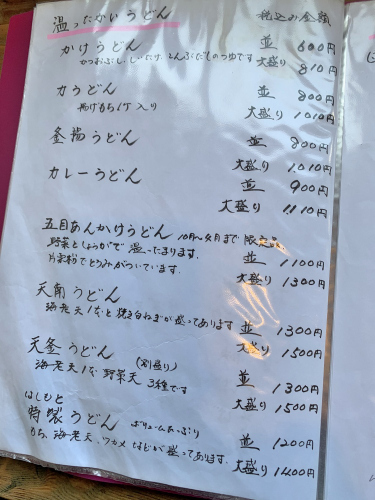 温ったかいうどん 税込み金額
かけうどん 並 600円
かつおぶし、しいたけ、こんぶだしのつゆです 大盛り 810円
力うどん 並 800円
揚げもち1ケ入り 大盛り 1010円
釜揚うどん 並 800円
大盛り 1010円
カレーうどん 並 900円
大盛り 1110円
五目あんかけうどん 10月〜4月まで 限定品
野菜としょうがで温ったまります。 並 1100円
片栗粉でとろみがついています。 大盛り 1300円
天南うどん
海老天1本と焼き白ねぎが盛ってあります 並 1300円
大盛り 1500円
天釜うどん (別盛り)
海老天1本 野菜天 3種です 並 1300円
大盛り 1500円
はしもと
特製うどん ボリュームたっぷり 並 1200円
もち、海老天、ワカメ などが盛ってあります。 大盛り 1400円